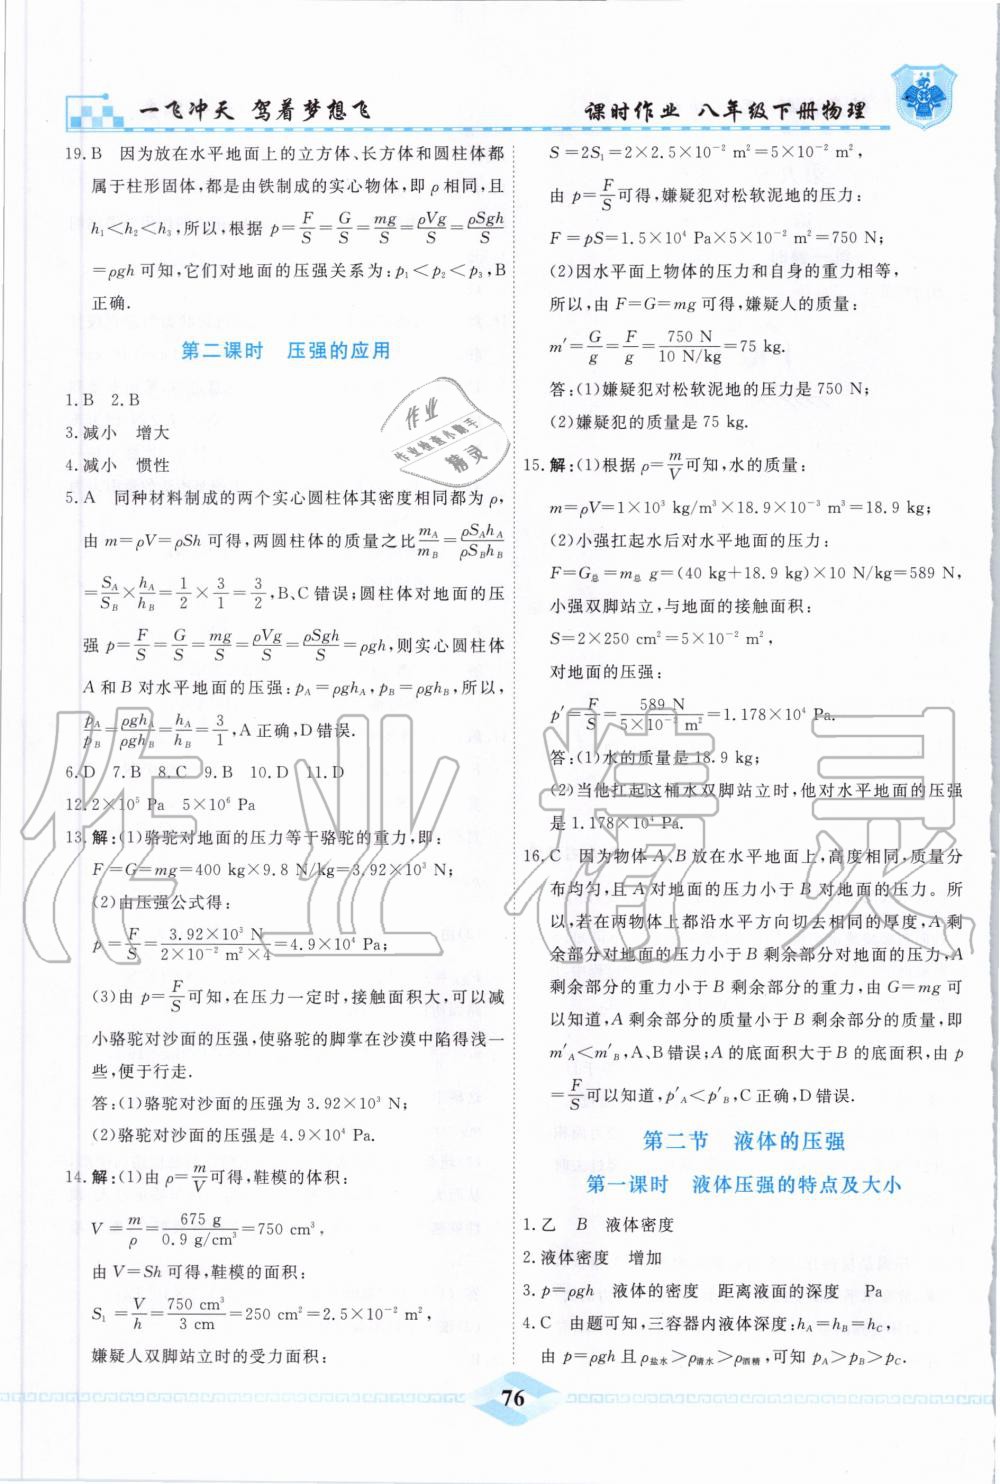 一飞冲天 驾着梦想飞
课时作业 八年级下册物理
19.B 因为放在水平地面上的立方体、长方体和圆柱体都
属于柱形固体,都是由铁制成的实心物体,即 ρ 相同,且
h₁<h₂<h₃,所以,根据 p=F/S=G/S=mg/S=ρVg/S=ρSgh/S
=ρgh 可知,它们对地面的压强关系为:p₁<p₂<p₃,B
正确.
第二课时 压强的应用
1.B 2.B
3.减小 增大
4.减小 惯性
5.A 同种材料制成的两个实心圆柱体其密度相同都为 ρ,
由 m=ρV=ρSh 可得,两圆柱体的质量之比 m_A/m_B=ρS_Ah_A/ρS_Bh_B
=S_A/S_B×h_A/h_B=1/2×3/1=3/2,B、C 错误;圆柱体对地面的压
强 p=F/S=G/S=mg/S=ρVg/S=ρSgh/S=ρgh,则实心圆柱体
A 和 B 对水平地面的压强:p_A=ρgh_A,p_B=ρgh_B,所以,
p_A/p_B=ρgh_A/ρgh_B=h_A/h_B=3/1,A 正确,D 错误.
6.D 7.B 8.C 9.B 10.D 11.D
12.2×10⁵ Pa 5×10⁶ Pa
13.解:(1)骆驼对地面的压力等于骆驼的重力,即:
F=G=mg=400 kg×9.8 N/kg=3.92×10³ N
(2)由压强公式得:
p=F/S=3.92×10³ N/2×10⁻² m²×4=4.9×10⁴ Pa;
(3)由 p=F/S可知,在压力一定时,接触面积大,可以减
小骆驼对沙面的压强,使骆驼的脚掌在沙漠中陷得浅一
些,便于行走.
答:(1)骆驼对沙面的压强为 3.92×10³ N;
(2)骆驼对沙面的压强是 4.9×10⁴ Pa.
14.解:(1)由 ρ=m/V可得,鞋模的体积:
V=m/ρ=675 g/0.9 g/cm³=750 cm³,
由 V=Sh 可得,鞋模的面积:
S₁=V/h=750 cm³/3 cm=250 cm²=2.5×10⁻² m²,
嫌疑人双脚站立时的受力面积:
S=2S₁=2×2.5×10⁻² m²=5×10⁻² m²,
由 p=F/S可得,嫌疑犯对松软泥地的压力:
F=pS=1.5×10⁴ Pa×5×10⁻² m²=750 N;
(2)因水平面上物体的压力和自身的重力相等,
所以,由 F=G=mg 可得,嫌疑人的质量:
m′=G/g=F/g=750 N/10 N/kg=75 kg.
答:(1)嫌疑犯对松软泥地的压力是 750 N;
(2)嫌疑犯的质量是 75 kg.
15.解:(1)根据 ρ=m/V可知,水的质量:
m=ρV=1×10³ kg/m³×18.9×10⁻³ m³=18.9 kg;
(2)小强扛起水后对水平地面的压力:
F=G总=m总 g=(40 kg+18.9 kg)×10 N/kg=589 N,
小强双脚站立,与地面的接触面积:
S=2×250 cm²=5×10⁻² m²,
对地面的压强:
p′=F/S=589 N/5×10⁻² m²=1.178×10⁴ Pa.
答:(1)水的质量是 18.9 kg;
(2)当他扛起这桶水双脚站立时,他对水平地面的压强
是 1.178×10⁴ Pa.
16.C 因为物体 A、B 放在水平地面上,高度相同,质量分
布均匀,且 A 对地面的压力小于 B 对地面的压力。所
以,若在两物体上都沿水平方向切去相同的厚度,A 剩
余部分对地面的压力小于 B 剩余部分对地面的压力,A
剩余部分的重力小于 B 剩余部分的重力,由 G=mg 可
以知道,A 剩余部分的质量小于 B 剩余部分的质量,即
m′_A<m′_B,A、B 错误;A 的底面积大于 B 的底面积,由 p
=F/S可以知道,p′_A<p′_B,C 正确,D 错误.
第二节 液体的压强
第一课时 液体压强的特点及大小
1.乙 B 液体密度
2.液体密度 增加
3.p=ρgh 液体的密度 距离液面的深度 Pa
4.C 由题可知,三容器内液体深度:h_A=h_B=h_C,
由 p=ρgh 且 ρ盐水>ρ清水>ρ酒精,可知 p_A>p_B>p_C.
76
作业
作业检查小助手
精灵
作业精灵